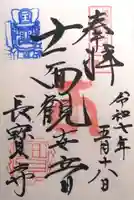 奉拝
令和七年
五月十八日
十一面観世音
長寳寺